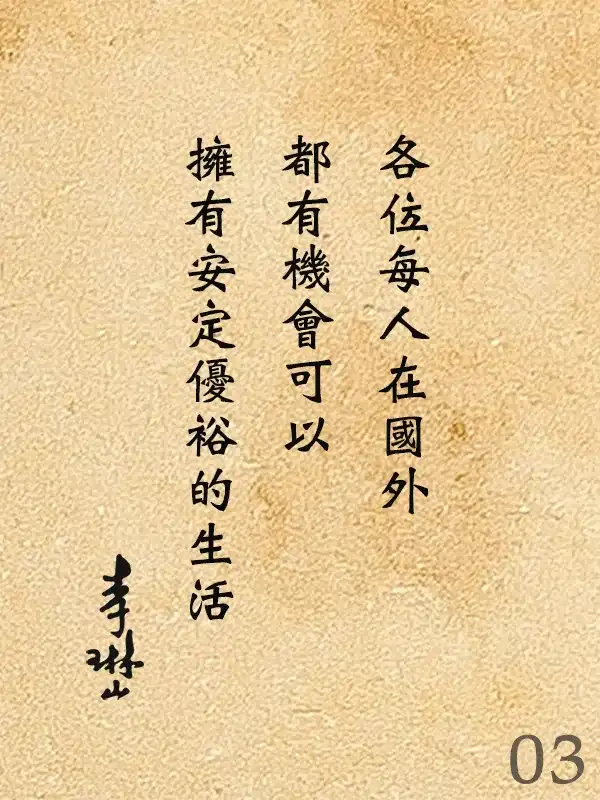 各位每人在國外
都有機會可以
擁有安定優裕的生活
李琳山
03